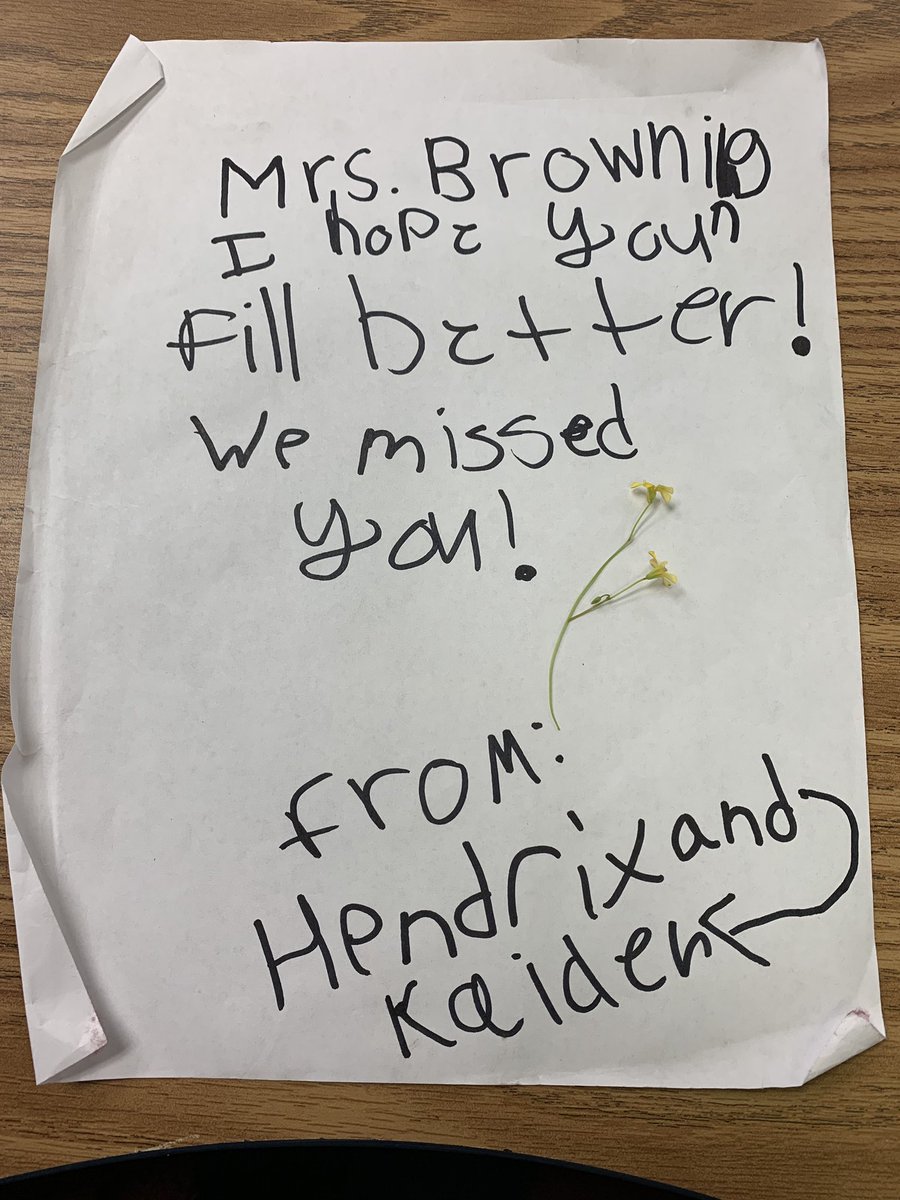 Mrs. Browning
I hope you
fill better!
We missed
you!
from:
Hendrix and
Kaiden